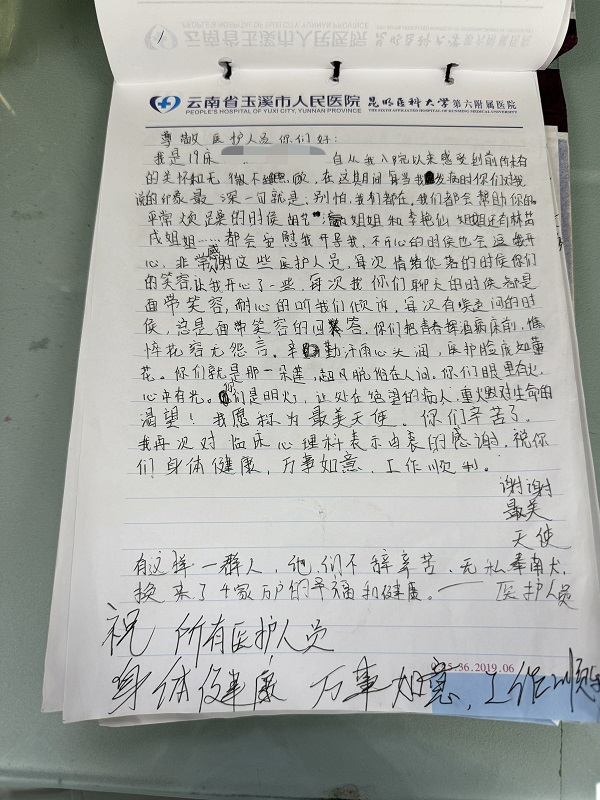 云南省玉溪市人民医院 昆明医科大学第六附属医院
PEOPLE'S HOSPITAL OF YUXI CITY, YUNNAN PROVINCE THE SIXTH AFFILIATED HOSPITAL OF KUNMING MEDICAL UNIVERSITY
尊敬医护人员你们好:
我是19床 自从我入院以来感受到前所未有
的关怀和无微不至照顾,在这期间每当我发病时你们对我
说的印象最深一句就是,别怕,我们都在,我们都会帮助你的
平常烦躁的时候 姐姐和李艳仙姐姐还有林苗
成姐姐……都会安慰我开导我,不开心的时候也会逗我开
心,非常感谢这些医护人员,每次情绪低落的时候你们
的笑容让我开心了一些,每次我你们聊天的时候都是
面带笑容,耐心的听我们倾诉,每次有疑问的时
候,总是面带笑容的回答,你们把青春挥洒病床前,憔
悴花容无怨言,辛勤汗雨心大润,医护脸庞如莲
花。你们就是那一朵莲,超凡脱俗在人间。你们眼里有火,
心中有光。你们是明灯,让处在绝望的病人,重燃对生命的
渴望!我愿称为最美天使。你们辛苦了。
我再次对临床心理科表示由衷的感谢,祝你
们身体健康,万事如意,工作顺利。
谢谢
最美
天使
有这样一群人,他们不辞辛苦、无私奉南犬,
换来了千家万户的幸福和健康。——医护人员
祝 所有医护人员
36.2019.06
身体健康 万事如意,工作顺